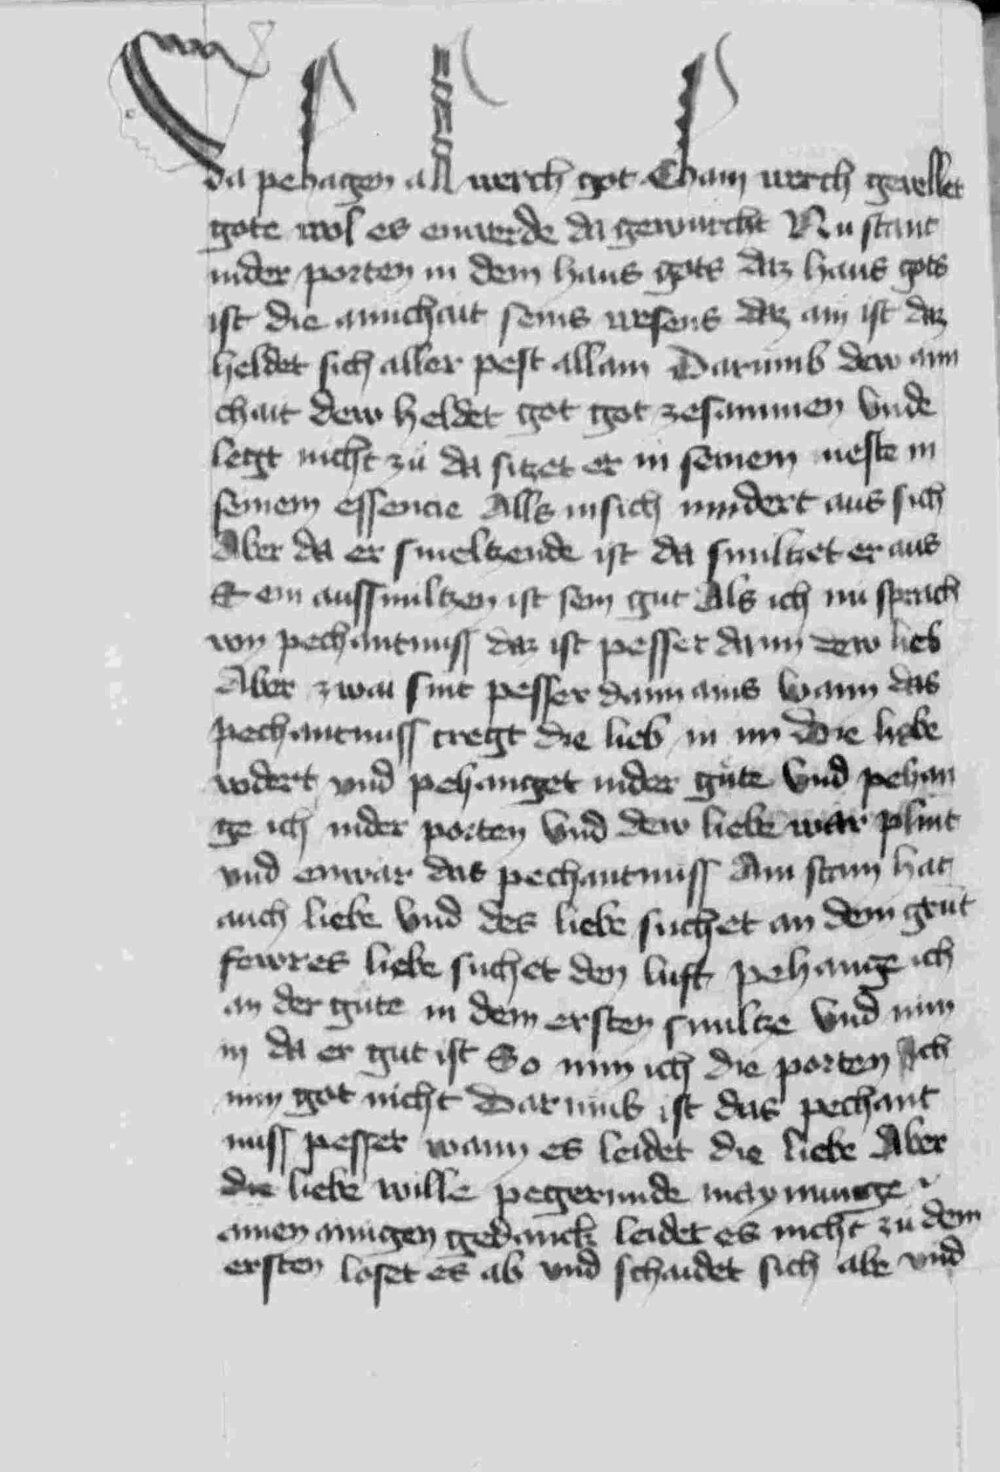 da pehagen all werch got Chain werch gevellet
gote wol es enwerde da gewurcht Nu stant
inder porten in dem haus gots daz haus gots
ist die ainichait seins wesens daz ain ist daz
heldet sich aller pest allain Darumb dew aini
chait dew heldet got got zesammen Vnde
legt nicht zü da sitzet er in seinem neste in
seinem essencie Alls insich nindert aus sich
Aber da er smeltzende ist da smiltzet er aus
ein aussmiltzen ist sein gut Als ich nu sprach
von pechantnuss daz ist pesser dann dew lieb
Aber zwai sint pesser dann ains Wann das
pechantnuss tregt die lieb in im Die liebe
vodert vnd pehanget inder güte Vnd pehan
ge ich inder porten Vnd dew liebe wär plint
vnd enwär das pechantnuss Ain stain hat
auch liebe Vnd des liebe suchet an dem grut
fewres liebe suchet den luft pehange ich
an der güte in dem ersten smiltze Vnd nim
in da er gut ist So nim ich die porten Ich
nim got nicht Darumb ist das pechant
nuss pesser wann es leidet die liebe Aber
die liebe wille pegerunde maynunge
ainen ainigen gedanck leidet es nicht zü dem
ersten loset es ab vnd schaidet sich abe vnd